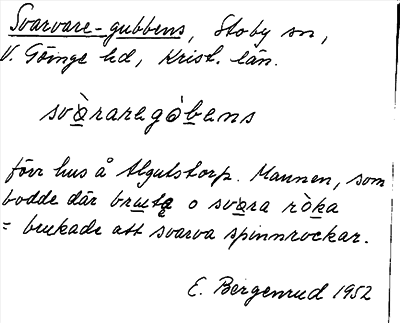 Svarvare-gubbens, Stoby sn,
V. Göinge hd, Krist. län.
svàraregòbens
förr hus å Algutstorp. Mannen, som
bodde där bruta o svara ròka
= brukade att svarva spinnrockar.
E. Bergenrud 1952